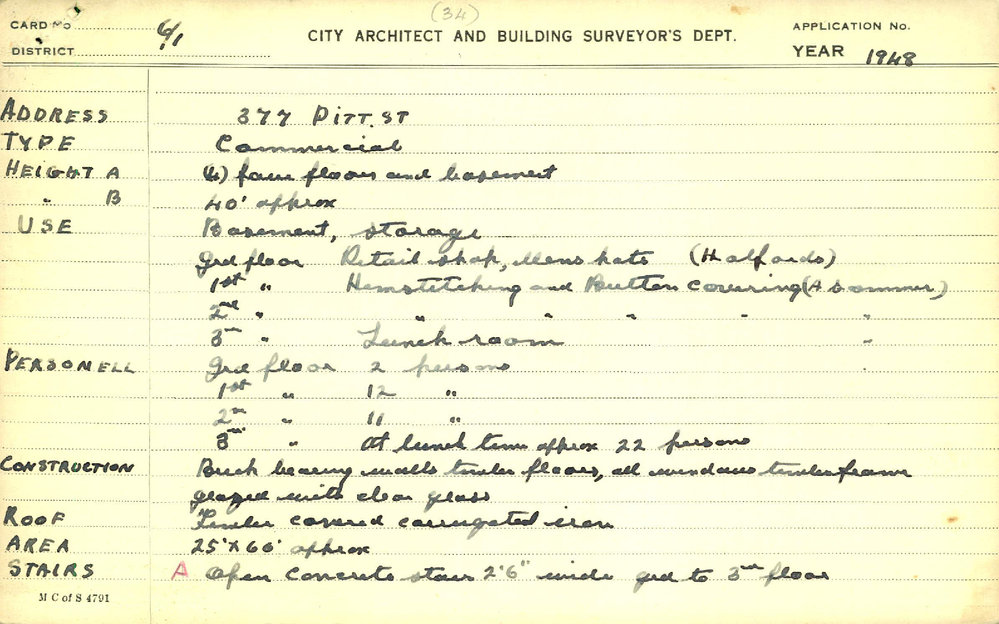 (34)
CARD No 6/1
DISTRICT
CITY ARCHITECT AND BUILDING SURVEYOR'S DEPT.
APPLICATION No.
YEAR 1948
ADDRESS 377 PITT. ST
TYPE Commercial
HEIGHT A (4) four floors and basement
" B 40' approx
USE Basement, storage
Grd floor Retail shop, Mens hats (Halfords)
1st " Hemstitching and Button covering (A Sommer)
2nd " " " " " "
3rd " Lunch room "
PERSONELL Grd floor 2 persons
1st " 12 "
2nd " 11 "
3rd " At lunch time approx 22 persons
CONSTRUCTION Brick bearing walls timber floors, all windows timber frame
glazed with clear glass
ROOF Timber covered corrugated iron
AREA 25' X 60' approx
STAIRS A Open concrete stair 2'6" wide grd to 3rd floor
M C of S 4791